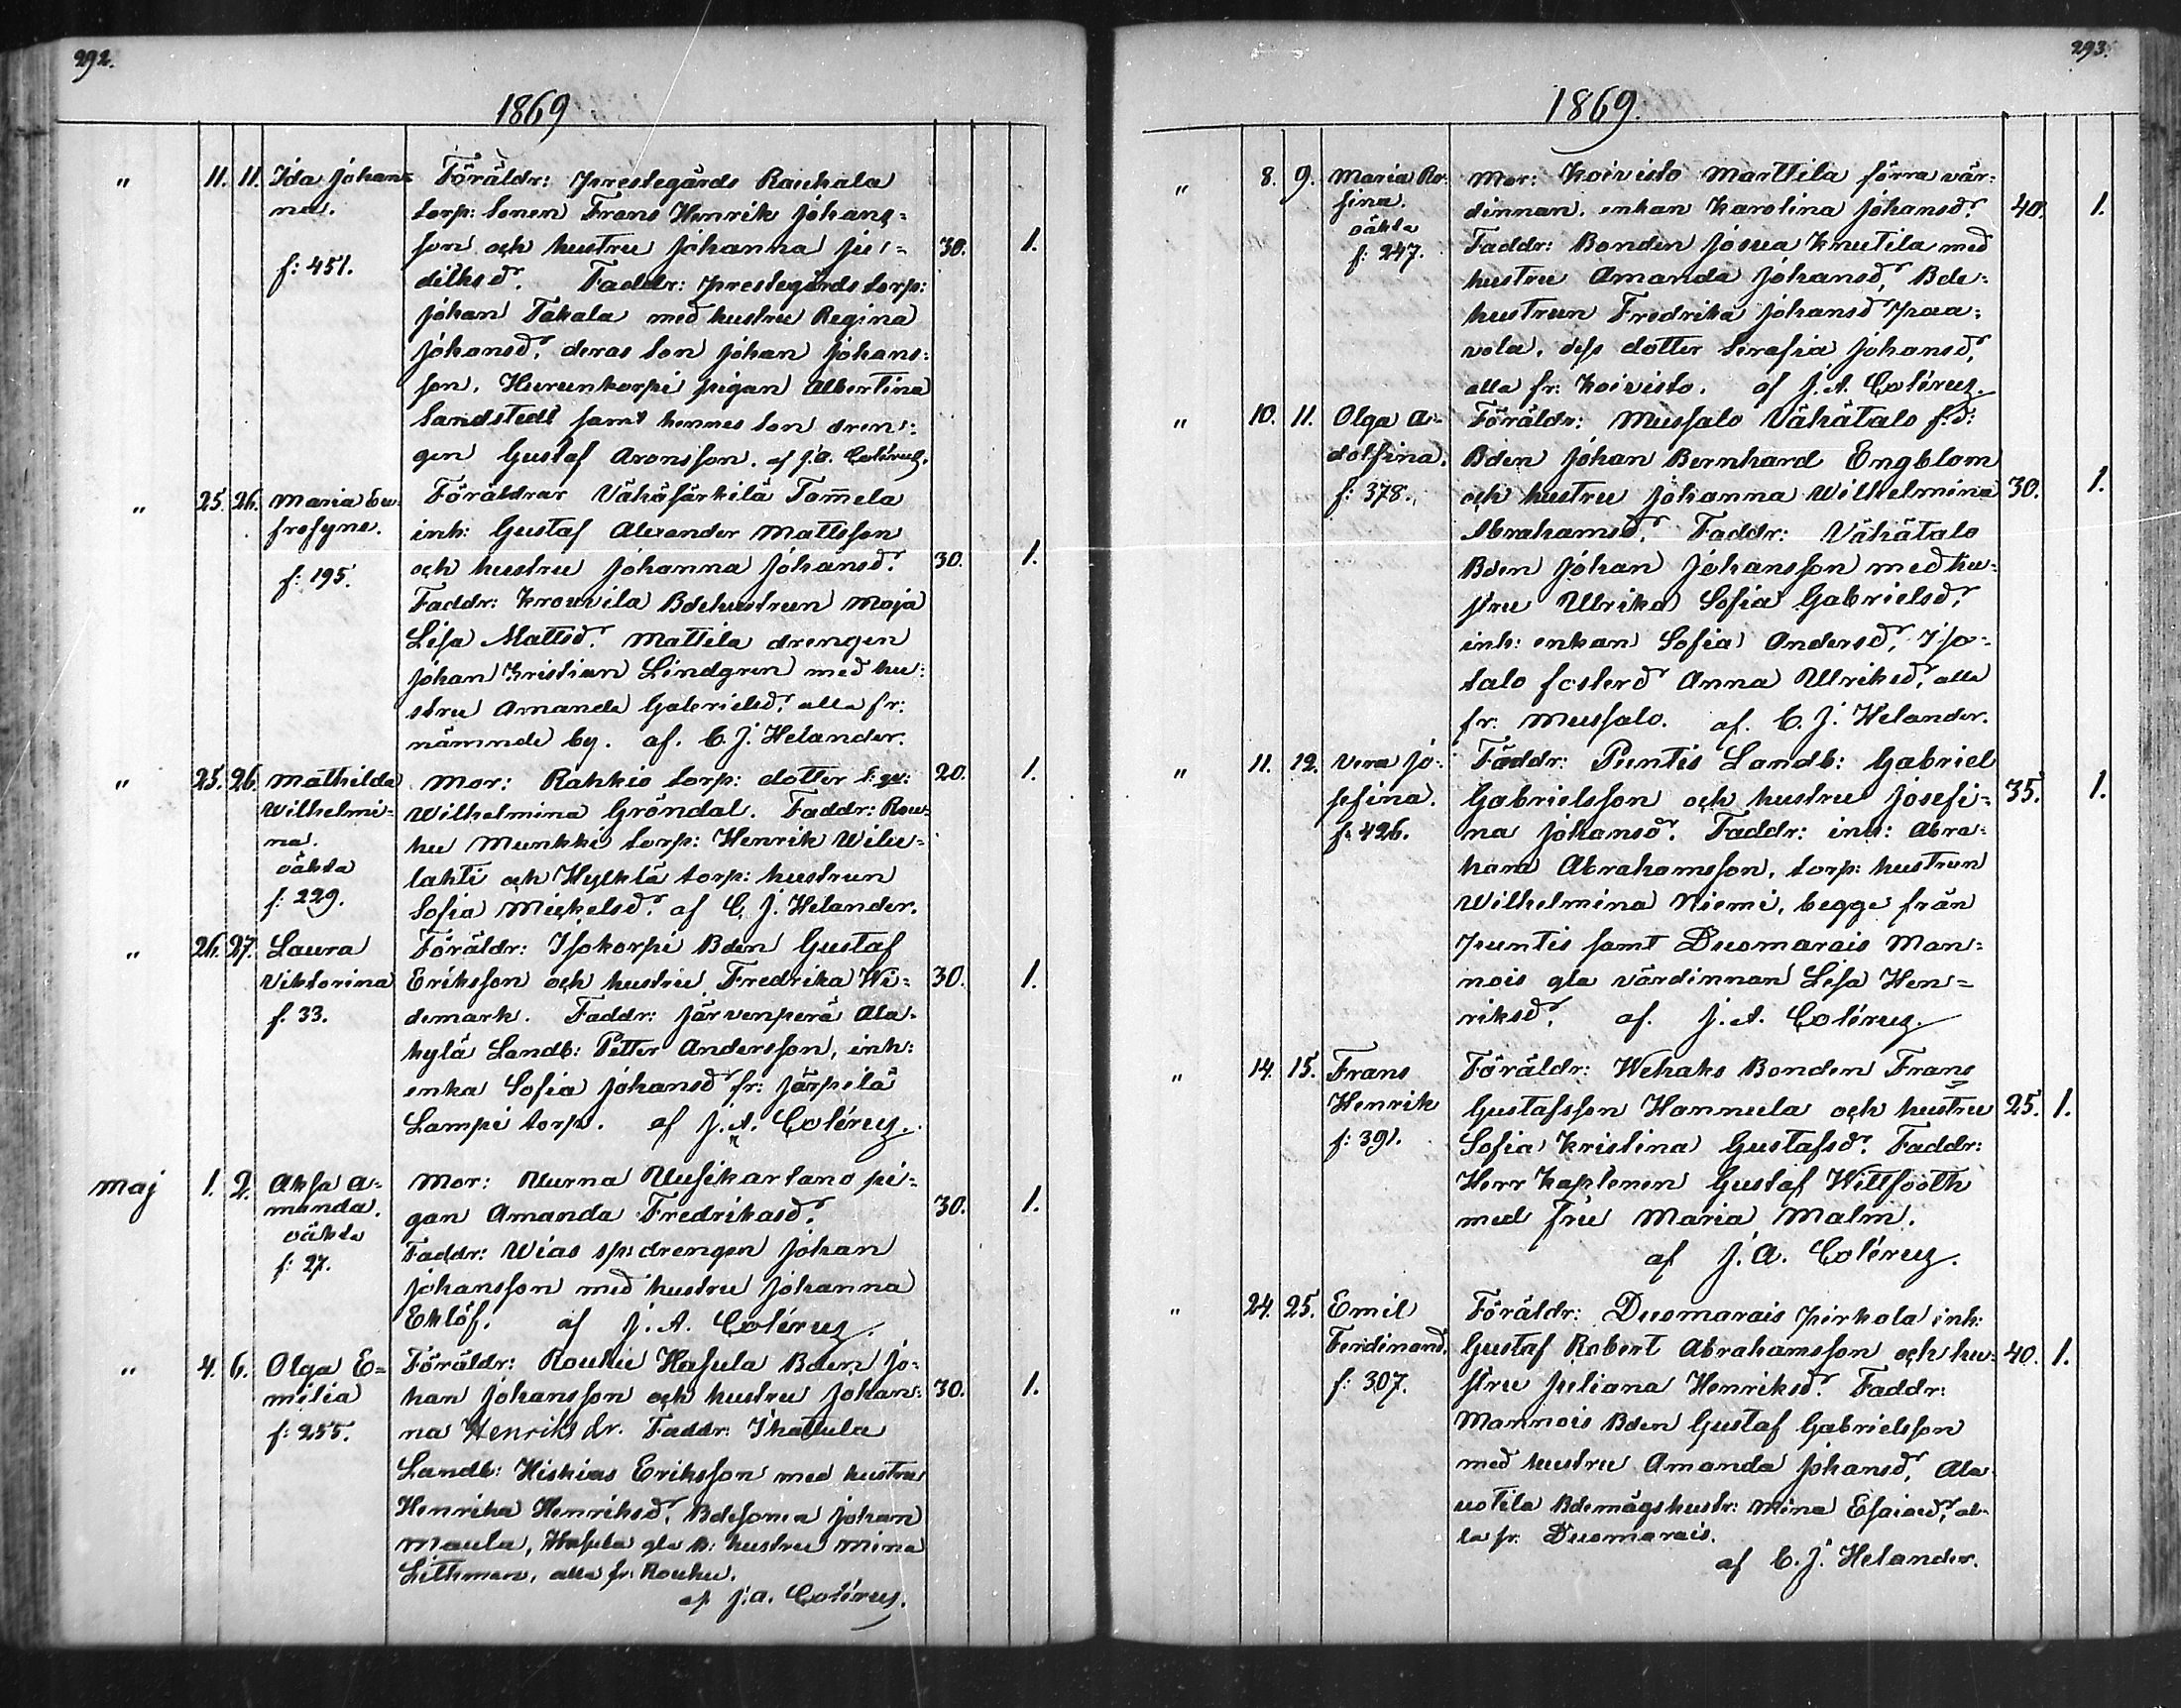 292.
1869
" 11. 11. Ida Johan= Föräldr: Prestegårds Raukala
na. torp: sonen Frans Henrik Johans=
son och hustru Johanna Ju= 30. 1.
f: 451. dithsdr. Faddr: prestegårds torp:
Johan Takala med hustru Regina
Johansdr, deras son Johan Johans=
son, Hurunkorpi pigan Albertina
Sandstedt samt hennes son dren=
gen Gustaf Aronsson. af J.A. Colérus.
" 25. 26. Maria Eu= Föräldrar Vähäsärkilä Tom̄ela
frosyne. inh: Gustaf Alexander Mattsson
och hustru Johanna Johansdr. 30. 1.
f: 195. Faddr: Krouvila Bdehustrun Maja
Lisa Mattsdr. Mattila drengen
Johan Kristian Lindgren med hu=
stru Amanda Gabrielsdr, alla fr:
nämnde by. af. C. J. Helander.
" 25. 26. Mathilda Mor: Rahkio torp: dotter 20. 1.
Wilhelmi= Wilhelmina Gröndal. Faddr: Rou=
na. hu Munkki torp: Henrik Wilu=
oäkta lahti och Hylkilä torp: hustrun
f: 229. Sofia Mickelsdr. af C. J. Helander.
" 26. 27. Laura Föräldr: Isokorpi Bden Gustaf
Viktorina Eriksson och hustru Fredrika Wi= 30. 1.
f. 33. demark. Faddr: Järvenperä Ala=
kylä Landb: Petter Andersson, inh:
enka Sofia Johansdr fr: Järpilä
Lampi torp. af J. A. Colérus.
Maj 1. 2. Aksa A= Mor: Nurna Uusikartano pi=
manda. gan Amanda Fredrikasdr. 30. 1.
oäkta Faddr: Wias sp: drengen Johan
f: 27. Johansson med hustru Johanna
Eklöf. af J. A. Colérus.
" 4. 6. Olga E= Föräldr: Rouhu Hasula Bden Jo=
milia han Johansson och hustru Johan= 30. 1.
f: 255. na Henriks dr. Faddr: Ihattula
Landb: Hiskias Eriksson med hustru
Henrika Henriksdr, Bdesonen Johan
Maula, Hasula gla B: hustru Mina
Lithman, alla fr: Rouhu.
af J. A. Colérus.
293.
1869.
" 8. 9. Maria Ro= Mor: Koivisto Marttila förra vär=
sina. dinnan, enkan Karolina Johansdr. 40. 1.
oäkta Faddr: Bonden Josua Knutila med
f: 247. hustru Amanda Johansdr, Bde=
hustrun Fredrika Johansdr Paa=
vola, dess dotter Serafia Johansdr,
alla fr: Koivisto. af J. A. Colérus.
" 10. 11. Olga A= Föräldr: Mussalo Vähätalo f: d:
dolfina. Bden Johan Bernhard Engblom
f: 378. och hustru Johanna Wilhelmina 30. 1.
Abrahamsdr. Faddr: Vähätalo
Bden Johan Johansson med hu=
stru Ulrika Sofia Gabrielsdr,
inh: enkan Sofia Andersdr, Iso=
talo fosterdr Anna Ulriksdr, alla
fr: Mussalo. af. C. J. Helander.
" 11. 12. Vera Jo= Föddr: Puntis Landb: Gabriel
sefina. Gabrielsson och hustru Josefi= 35. 1.
f: 426. na Johansdr. Faddr: inh: Abra=
ham Abrahamsson, torp: hustrun
Wilhelmina Niemi, begge från
Puntis samt Duomarais Man=
nois gla värdinnan Lisa Hen=
riksdr. af. J. A. Colérus.
" 14. 15. Frans Föräldr: Wehaks Bonden Frans
Henrik Gustafsson Hannula och hustru 25. 1.
f: 391. Sofia Kristina Gustafsdr. Faddr:
Herr Kaptenen Gustaf Wittfooth
med fru Maria Malm.
af J. A. Colérus.
" 24. 25. Emil Föräldr: Duomarais Pirkola inh:
Ferdinand. Gustaf Robert Abrahamsson och hu= 40. 1.
f: 307. stru Juliana Henriksdr. Faddr:
Mannois Bden Gustaf Gabrielsson
med hustru Amanda Johansdr, Ala
uotila Bdemågshustr: Mina Esaiædr, al=
la fr. Duomarais.
af C. J. Helander.